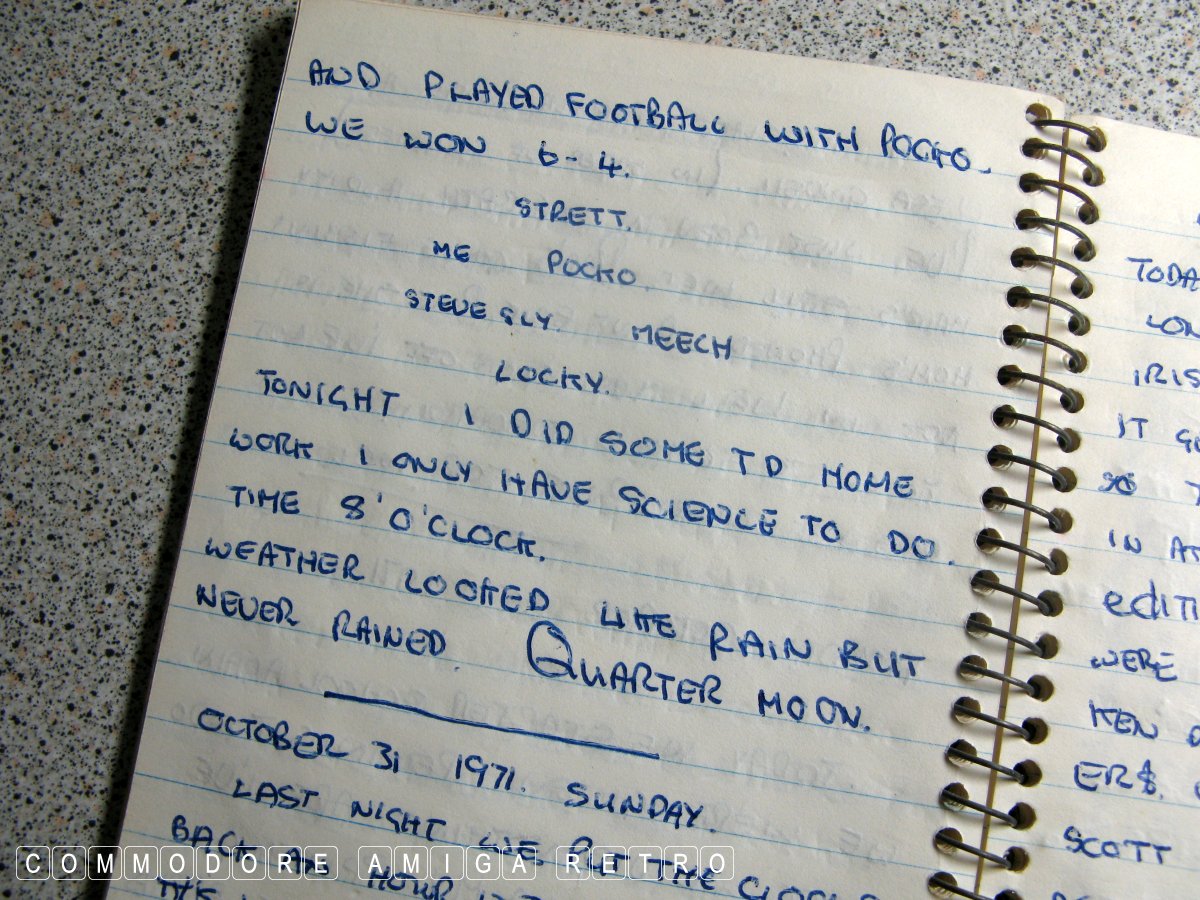 AND PLAYED FOOTBALL WITH POCKO.
WE WON 6-4.
STRETT.
ME POCKO.
STEVE SLY. MEECH
LOCKY.
TONIGHT I DID SOME TD HOME
WORK I ONLY HAVE SCIENCE TO DO.
TIME 8'O'CLOCK.
WEATHER LOOKED LIKE RAIN BUT
NEVER RAINED. QUARTER MOON.
OCTOBER 31 1971. SUNDAY.
LAST NIGHT WE PUT THE
BACK AN HOUR
TODA
LON
IRIS
IT
IN AT
editi
WERE
KEN D
ERS.
SCOTT
COMMODORE AMIGA RETRO